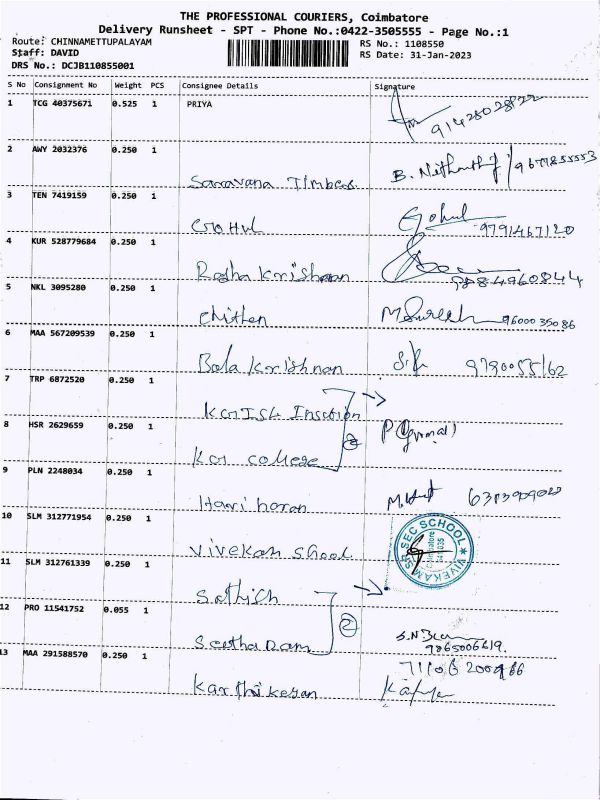 THE PROFESSIONAL COURIERS, Coimbatore
Delivery Runsheet - SPT - Phone No.:0422-3505555 - Page No.:1
Route: CHINNAMETTUPALAYAM
RS No.: 1108550
Staff: DAVID
RS Date: 31-Jan-2023
DRS No.: DCJB110855001
S No Consignment No Weight PCS Consignee Details Signature
1 TCG 40375671 0.525 1 PRIYA
2 AWY 2032376 0.250 1
Saravana Timbers B. 9677855553
3 TEN 7419159 0.250 1
Gokul Gohul 9791467120
4 KUR 528779684 0.250 1
Radha Krishnan 9884960844
5 NKL 3095280 0.250 1
chitten M Suresh 9600035086
6 MAA 567209539 0.250 1
Bala Krishnan
7 TRP 6872520 0.250 1
8 HSR 2629659 0.250 1
college
9 PLN 2248034 0.250 1
Hari haran
10 SLM 312771954 0.250 1
Vivekam School
SEC SCHOOL VIVEKAM
Coimbatore
11 SLM 312761339 0.250 1
Sathish
12 PRO 11541752 0.055 1
Seetha Ram 2
9865006619.
13 MAA 291588570 0.250 1
Karthikeyan